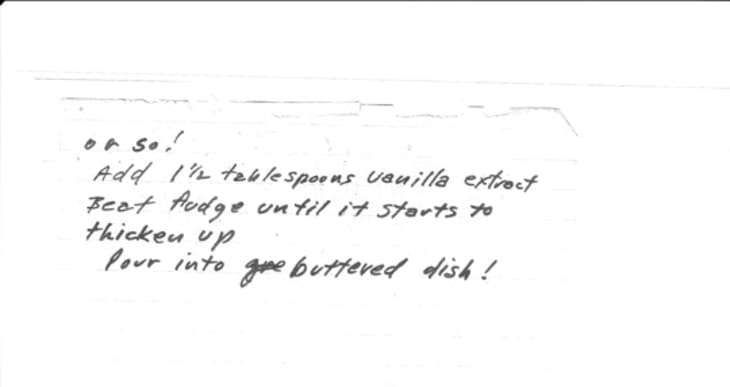 or so!
Add 1 1/2 tablespoons vanilla extract
Beat fudge until it starts to
thicken up
Pour into buttered dish!